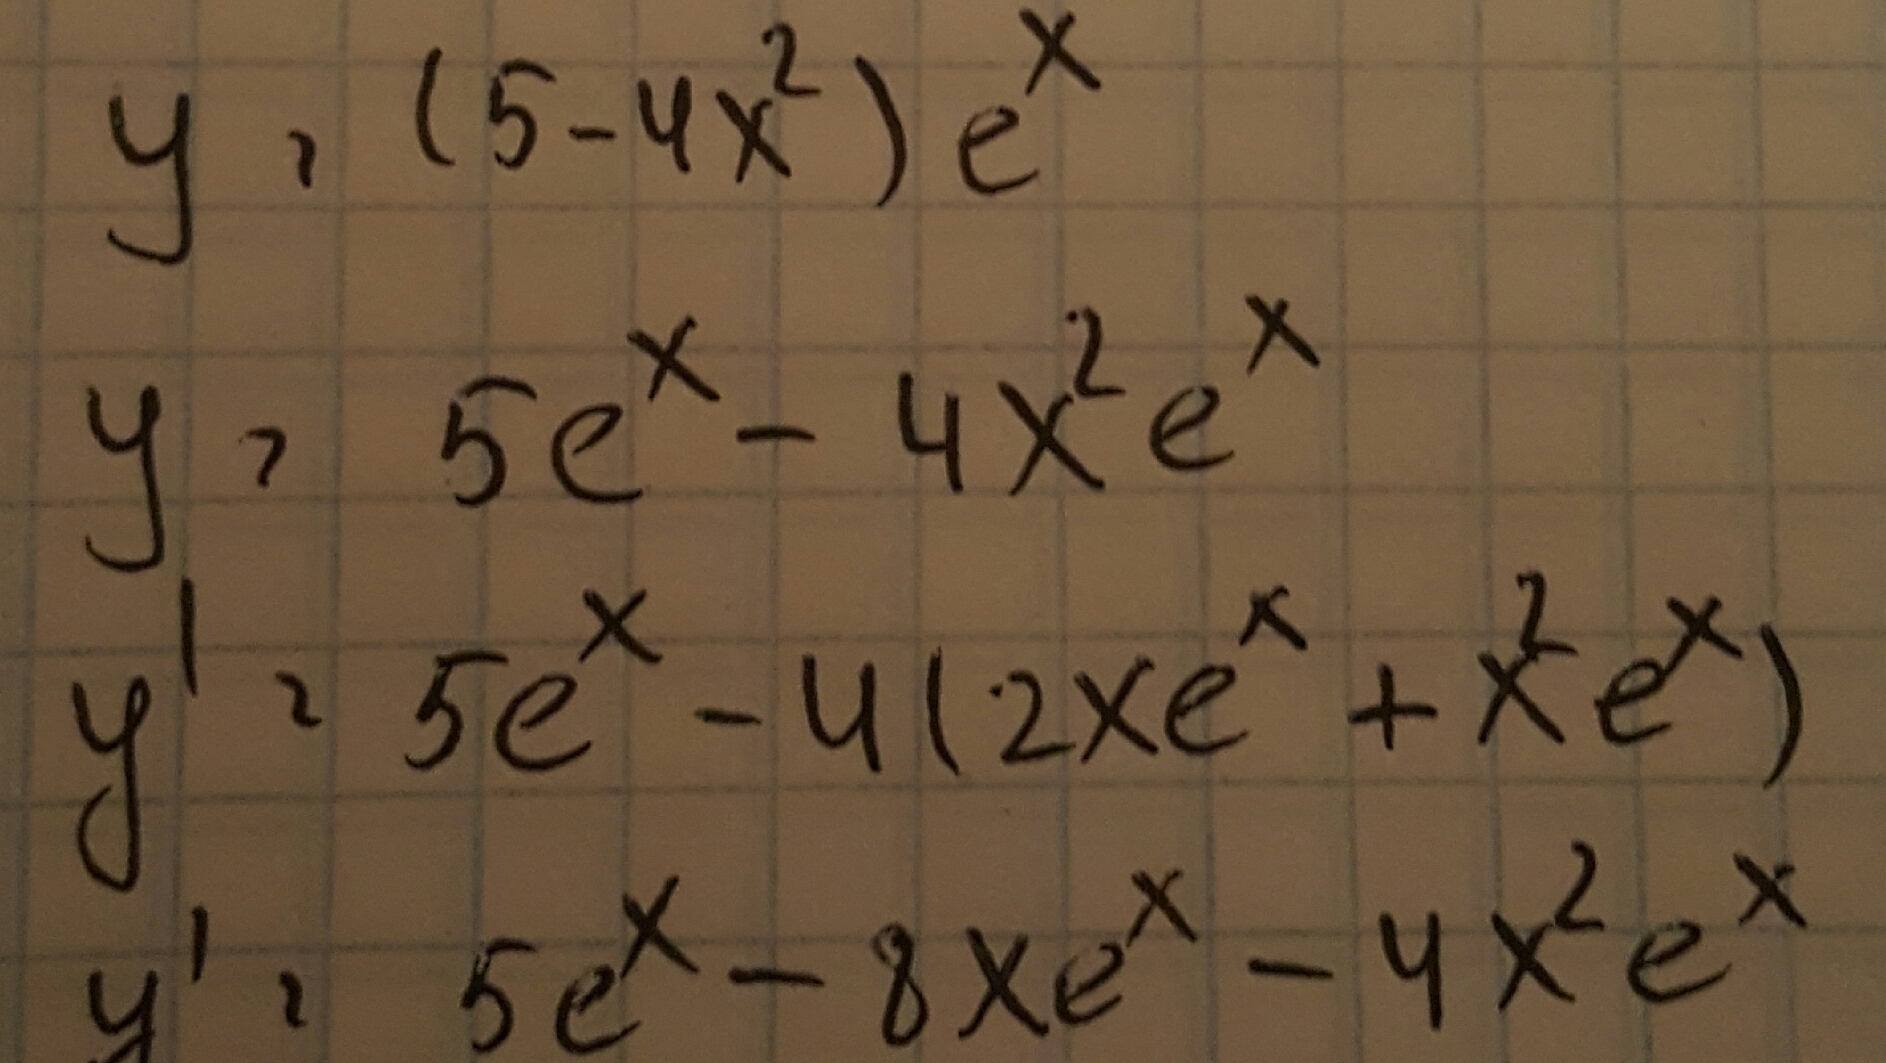 y = (5-4x²)eˣ
y = 5eˣ - 4x²eˣ
y' = 5eˣ - 4(2xeˣ + x²eˣ)
y' = 5eˣ - 8xeˣ - 4x²eˣ